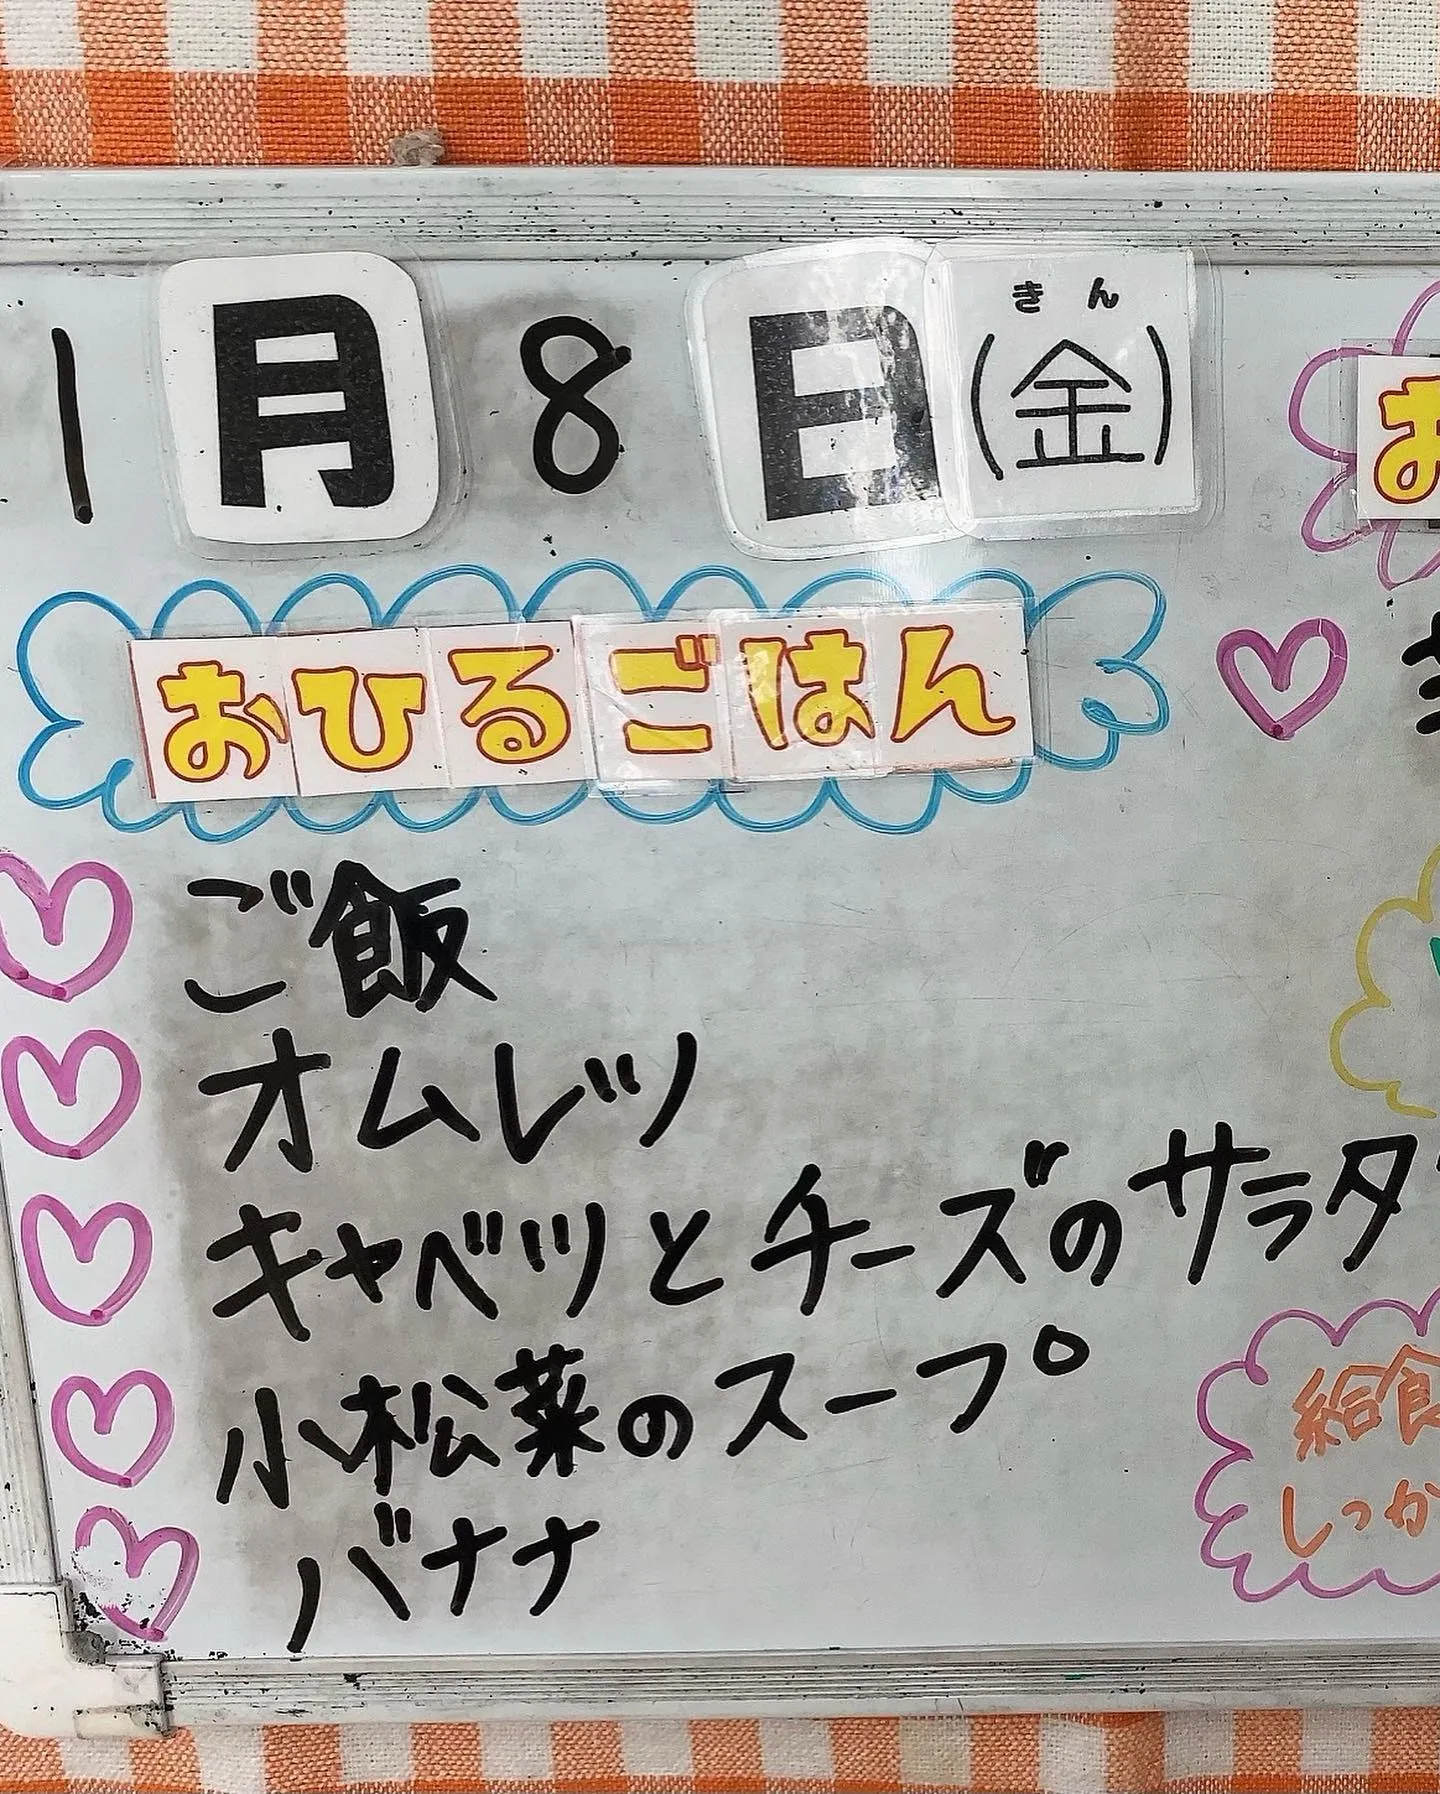 1月8日(金)
きん
おひるごはん
お
ご飯
オムレツ
キャベツとチーズのサラダ
小松菜のスープ
バナナ
給食
しっか